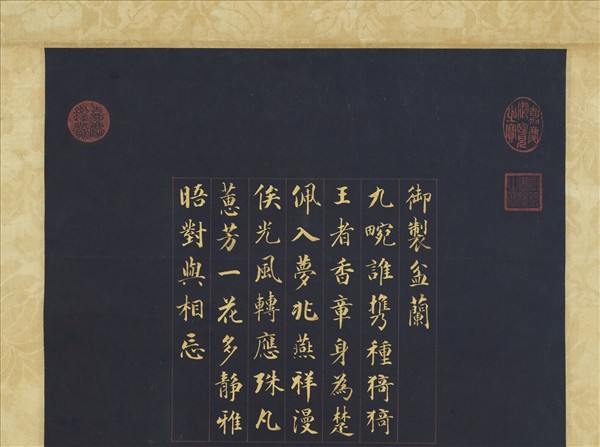 御製盆蘭
九畹誰攜種猗猗
王者香章身為楚
佩入夢兆燕祥漫
俟光風轉應殊凡
蕙芳一花多靜雅
晤對與相忘